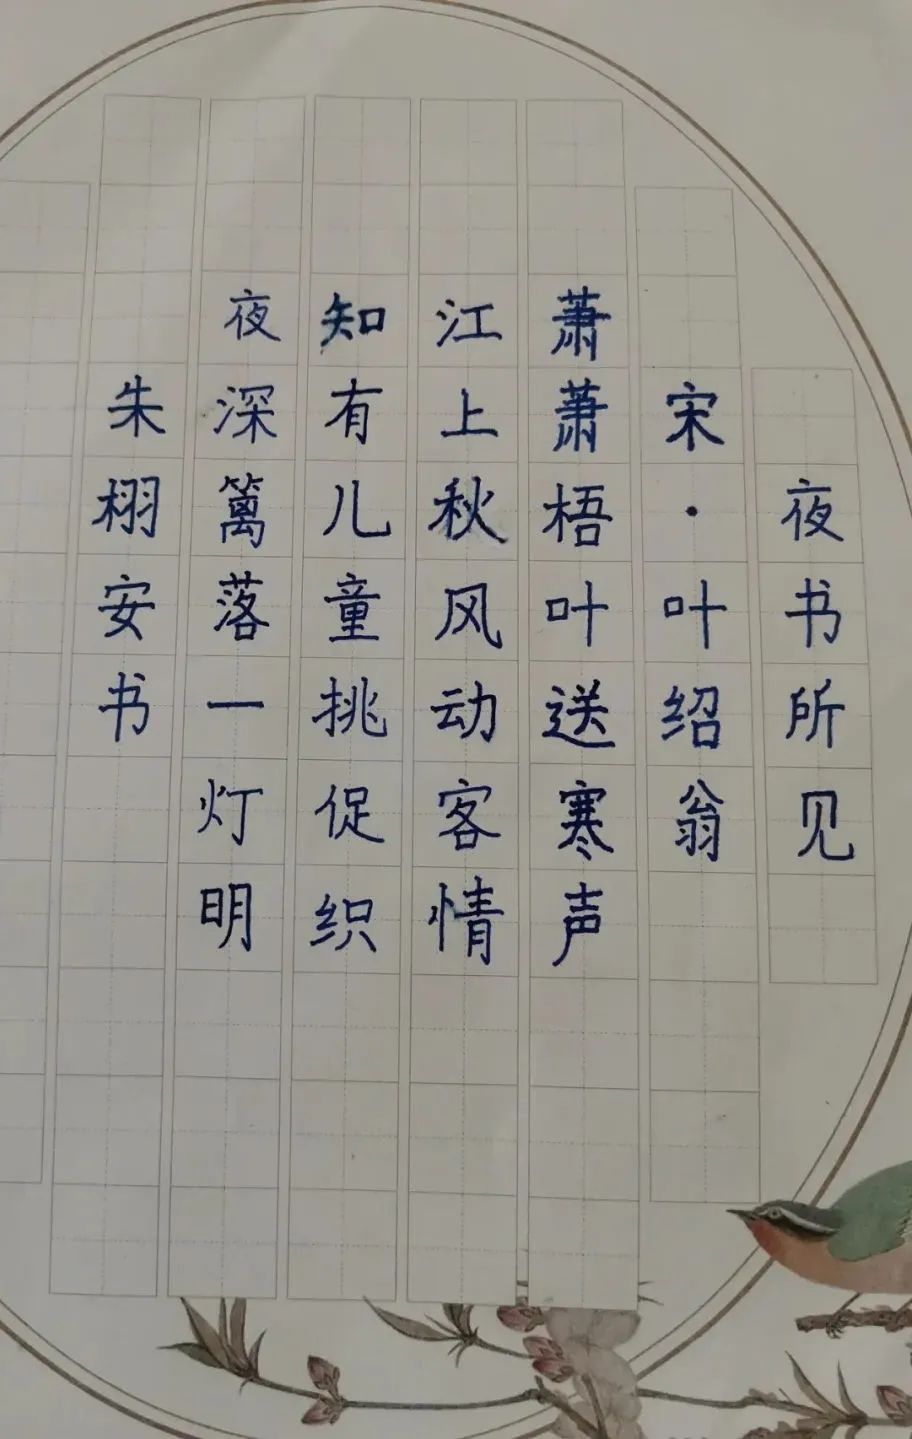 夜书所见
宋·叶绍翁
萧萧梧叶送寒声
江上秋风动客情
知有儿童挑促织
夜深篱落一灯明
朱栩安书